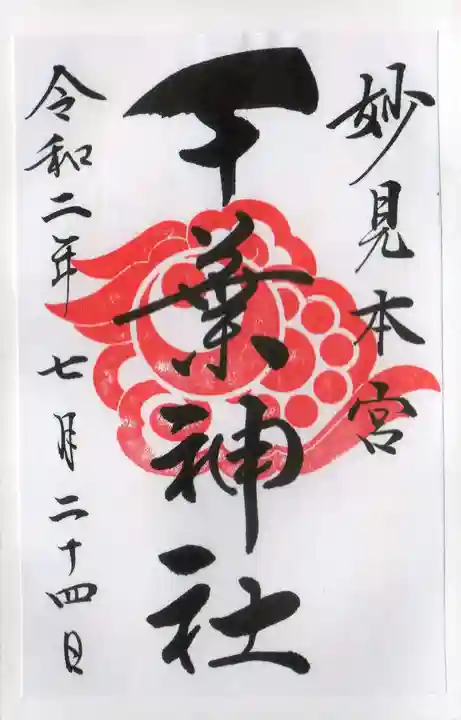 妙見本宮
千葉神社
令和二年 七月二十四日